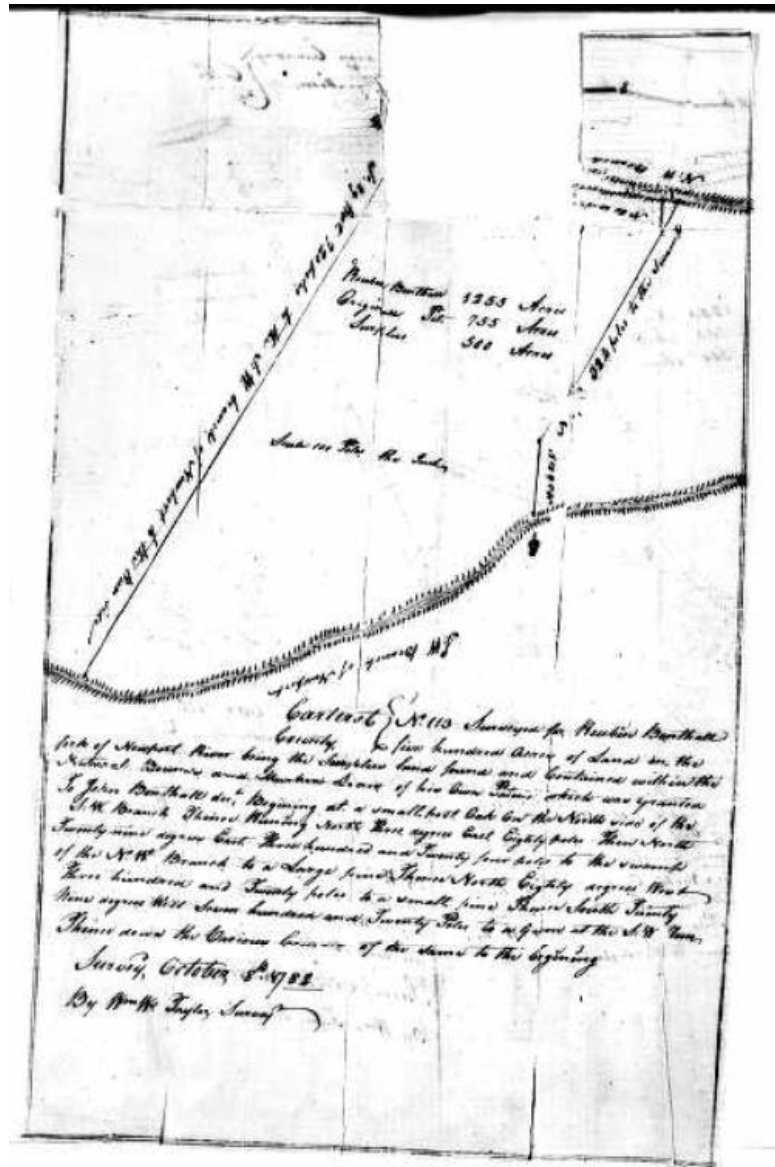 N. W Branch
So 29 Wt 720 poles to the S. W branch of Newport to the Run side
Reuben Benthall 1255 Acres
Original Pt. 755 Acres
Surplus 500 Acres
324 poles to the Swamp
Scale 100 Poles the Inch
SW Branch of Newport
Carteret County } No. 113 Surveyed for Reuben Benthall
five hundred Acres of Land on the
fork of Newport River being the Surpluss land found and Contained within the
Natural Bounds and Lines of his Own Patent which was granted
To John Benthall decd. Begining at a small post Oak on the North side of the
S. W. Branch Thence Running North Three degrees East Eighty poles Then North
Twenty nine degrees East Three hundred and Twenty four poles to the swamp
of the N. W. Branch to a Large pine Thence North Eighty degrees West
Three hundred and Twenty poles to a small pine Thence South Twenty
Nine degrees West Seven hundred and Twenty Poles to a Gum at the S. W
Thence down the Various Courses of the same to the begining
Survey October 8th. 1788
By Wm. Wt. Taylor Survayr